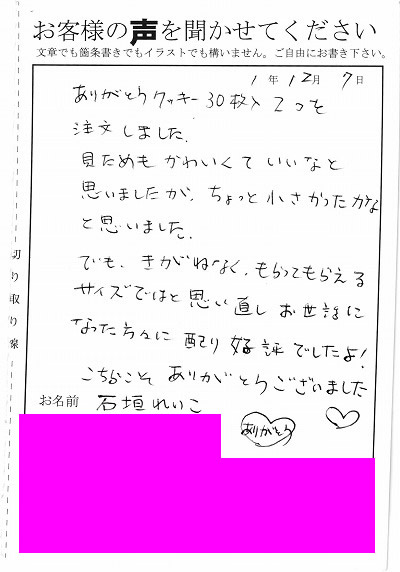 お客様の声を聞かせてください
文章でも箇条書きでもイラストでも構いません。ご自由にお書き下さい。
1年12月7日
ありがとうクッキー30枚入2つを
注文しました。
見ためもかわいくていいなと
思いましたが、ちょっと小さかったかな
と思いました。
でも、きがねなく、もらってもらえる
サイズではと思い直しお世話に
なった方々に配り好評でしたよ!
こちらこそありがとうございました
お名前 石垣れいこ
ありがとう
切り取り線